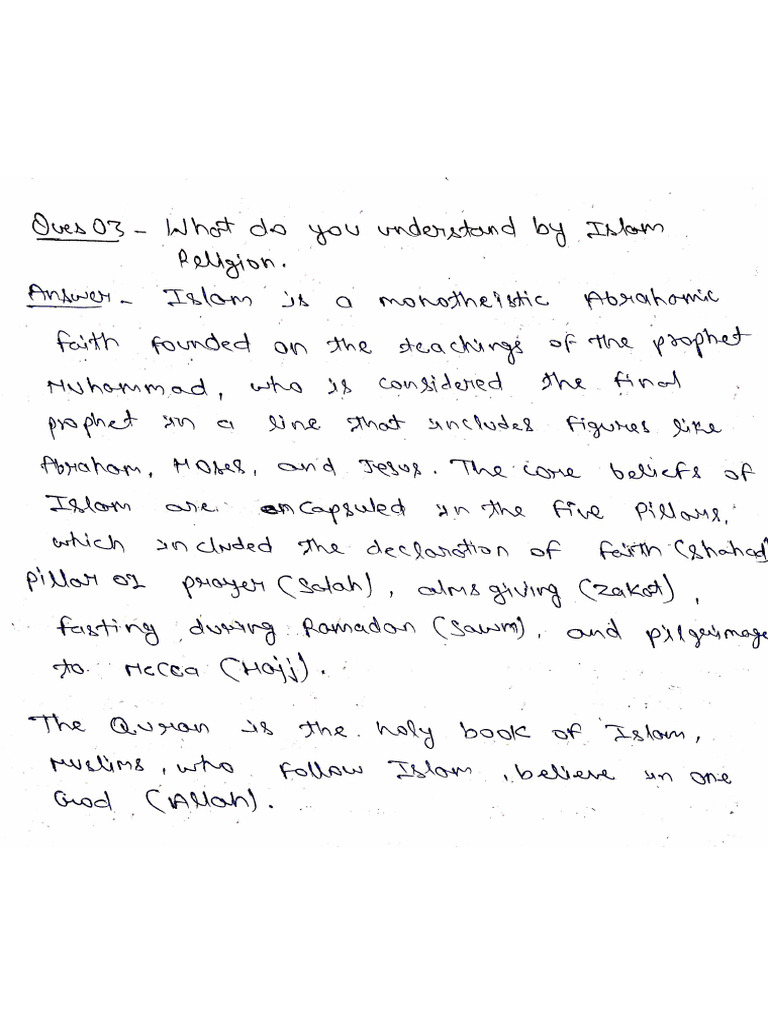 Ques 03 - What do you understand by Islam
Religion.
Answer - Islam is a monotheistic Abrahamic
faith founded on the teachings of the prophet
Muhammad, who is considered the final
prophet in a line that includes figures like
Abraham, Moses, and Jesus. The core beliefs of
Islam are encapsuled in the five Pillars,
which included the declaration of faith (Shahad
Pillar 02 prayer (Salah), alms giving (Zakat),
fasting during Ramadan (Sawm), and pilgrimage
to Mecca (Hajj).
The Quran is the holy book of Islam,
Muslims, who follow Islam, believe in one
God (Allah).